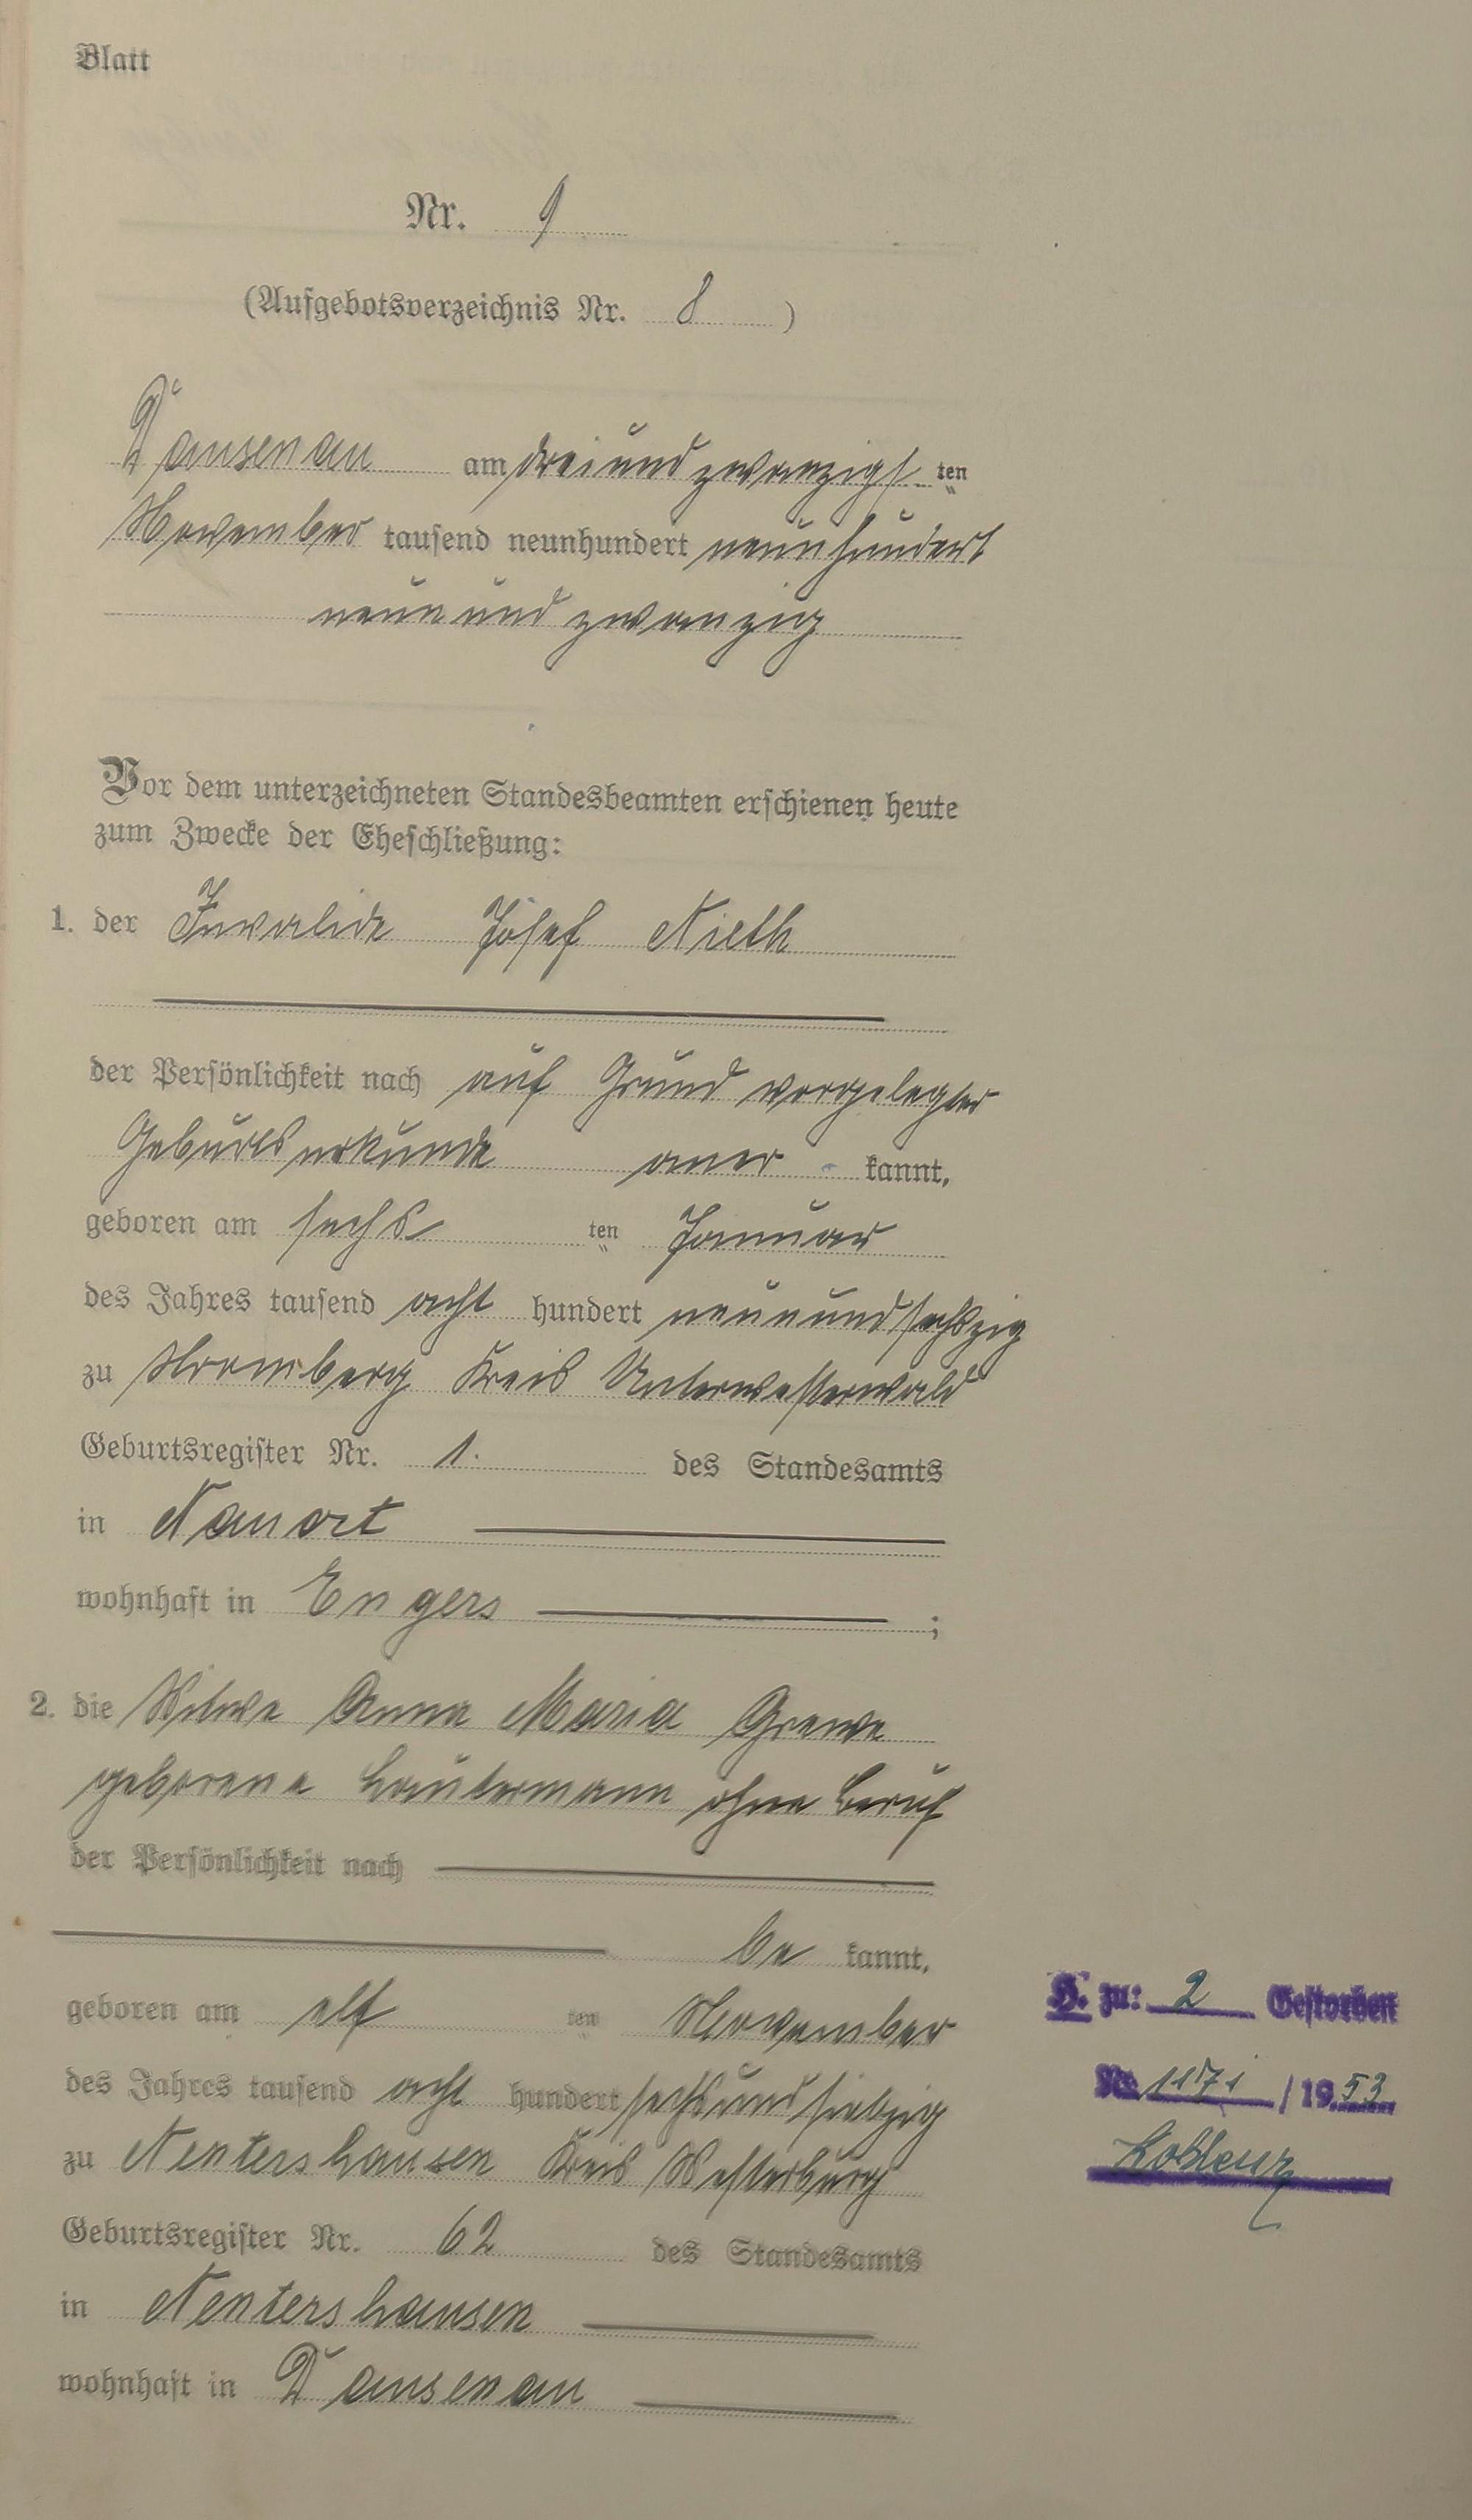 Blatt
Nr. 9
(Aufgebotsverzeichnis Nr. 8 )
Dausenau am dreiundzwanzigsten
November tausend neunhundert neunhundert
neunundzwanzig
Vor dem unterzeichneten Standesbeamten erschienen heute
zum Zwecke der Eheschließung:
1. der Invalide Josef
der Persönlichkeit nach auf Grund vorgelegter
Geburtsurkunde aner kannt,
geboren am sechsten Januar
des Jahres tausend acht hundert neunundsechszig
zu Kreis Unterwesterwald
Geburtsregister Nr. 1. des Standesamts
in Nauort
wohnhaft in Engers ;
2. die Witwe Anna Maria Grewe
geborene Lautermann ohne Beruf
der Persönlichkeit nach
be kannt,
geboren am elf ten November
des Jahres tausend acht hundert sechsundsiebzig
zu Nentershausen Kreis Westerburg
Geburtsregister Nr. 62 des Standesamts
in Nentershausen
wohnhaft in Dausenau
H. zu: 2 Gestorben
Nr. 1171 / 1953
Koblenz